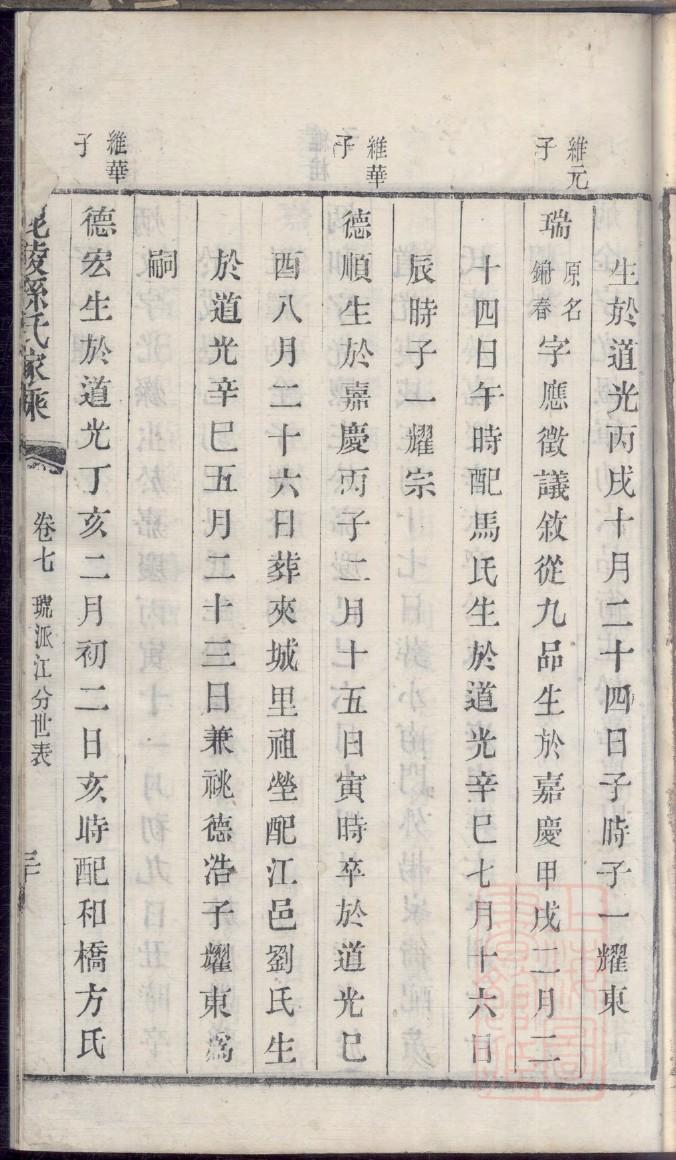 生於道光丙戌十月二十四日子時子一耀東
維元子
瑞原名鏘春字應徵議敘從九品生於嘉慶甲戌二月二
十四日午時配馬氏生於道光辛巳七月十六日
辰時子一耀宗
維華子
德順生於嘉慶丙子二月十五日寅時卒於道光己
酉八月二十六日葬夾城里祖塋配江邑劉氏生
於道光辛巳五月二十三日兼祧德浩子耀東為
嗣
維華子
德宏生於道光丁亥二月初二日亥時配和橋方氏
毘陵孫氏家乘
卷七 琥派江分世表